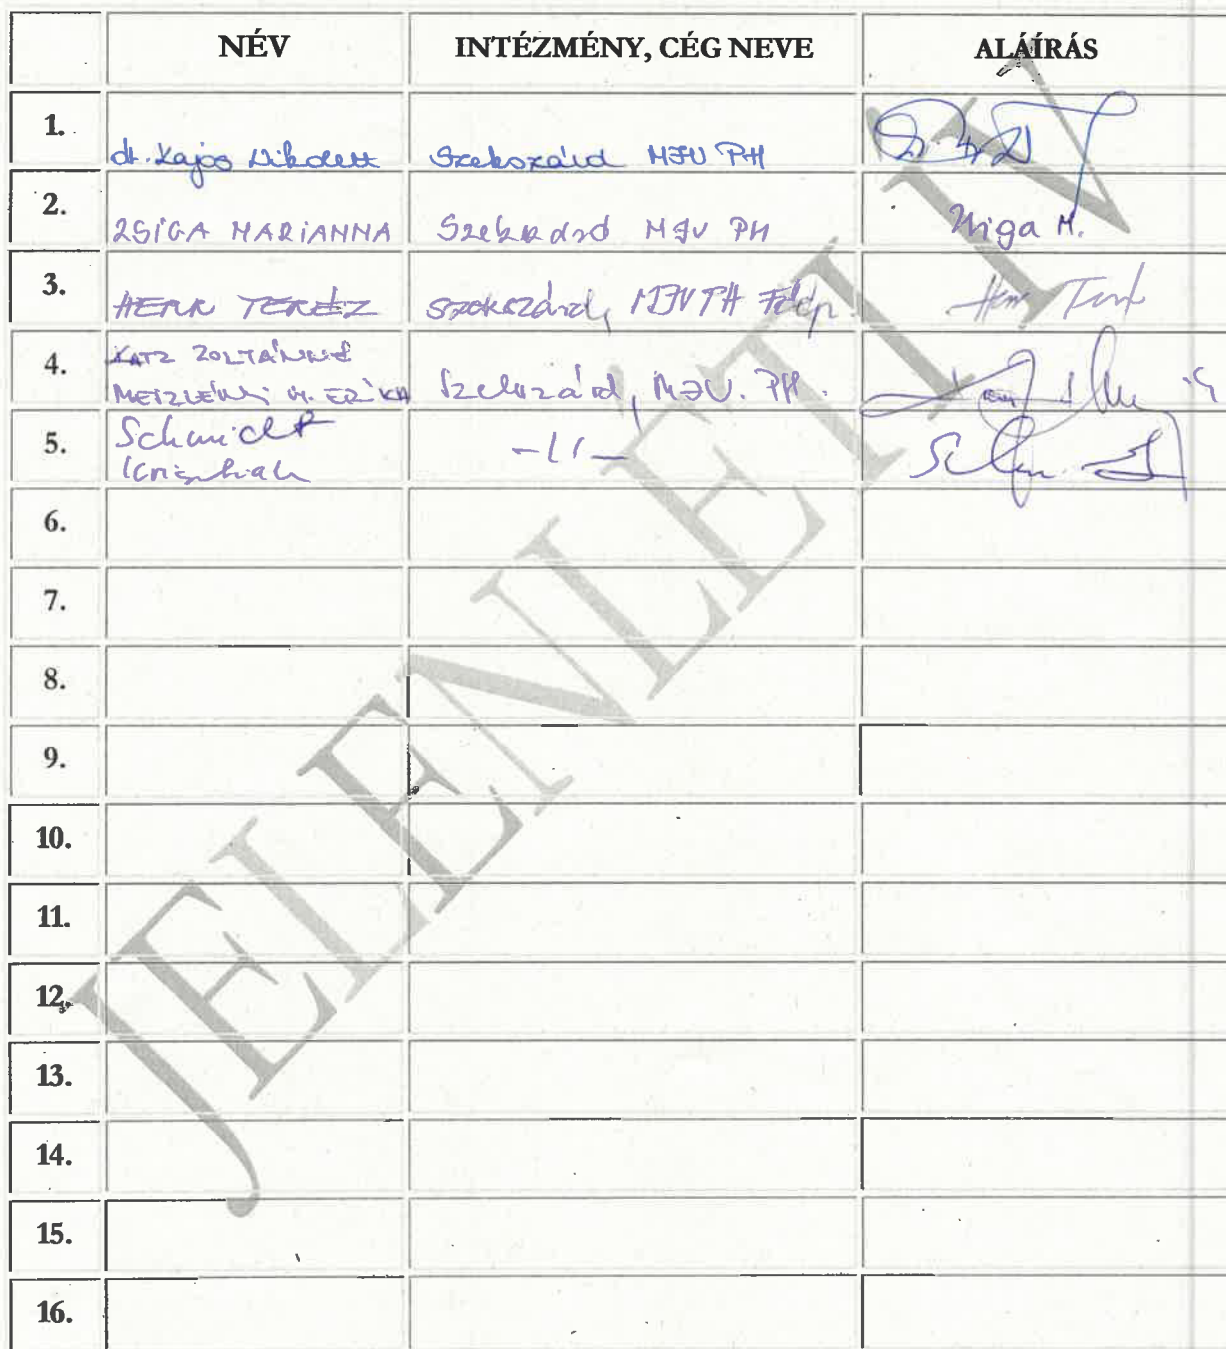 NÉV INTÉZMÉNY, CÉG NEVE ALÁÍRÁS
1. dr. Kajos Nikolett Szekszárd MJV PH
2. ZSIGA MARIANNA Szekszárd MJV PH Zsiga M.
3. HERR TERÉZ Szekszárd, MJV PH
4. KATZ ZOLTÁNNÉ
Szekszárd, MJV. PH.
5. Schmidt
Krisztián -11-
6.
7.
8.
9.
10.
11.
12.
13.
14.
15.
16.
JELENLÉTI ÍV